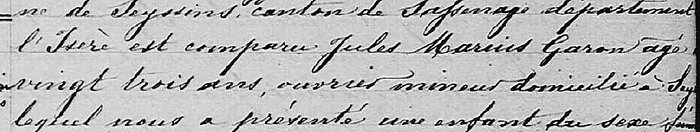 ne de Seyssins, canton de Sassenage département
l'Isère est comparu Jules Marius Garon agé
vingt trois ans, ouvrier mineur domicilié à Sey
lequel nous a présenté une enfant du sexe